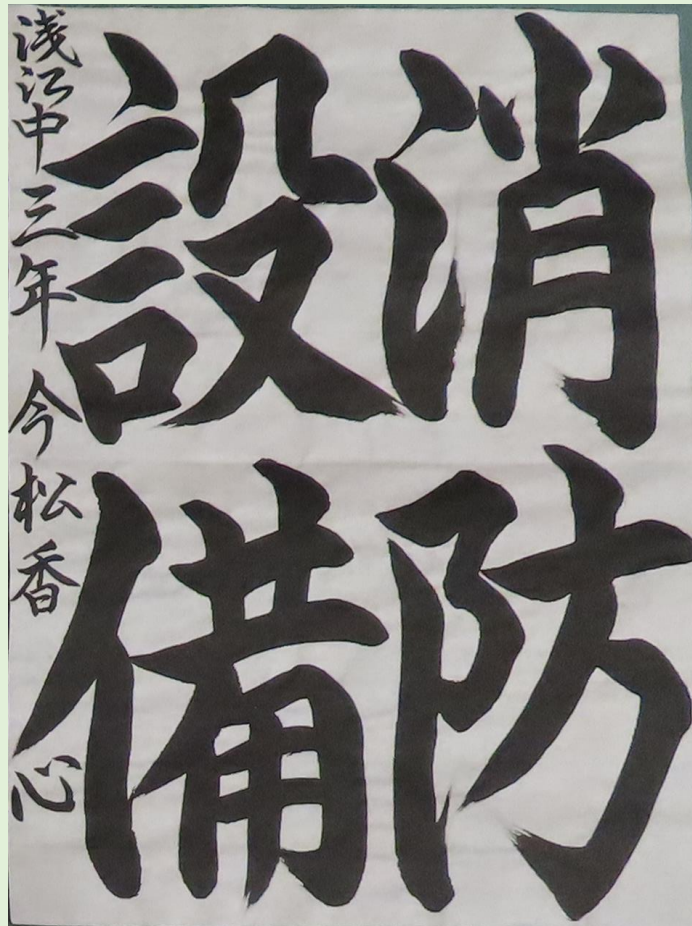 消防
設備
浅江中三年 今松香心